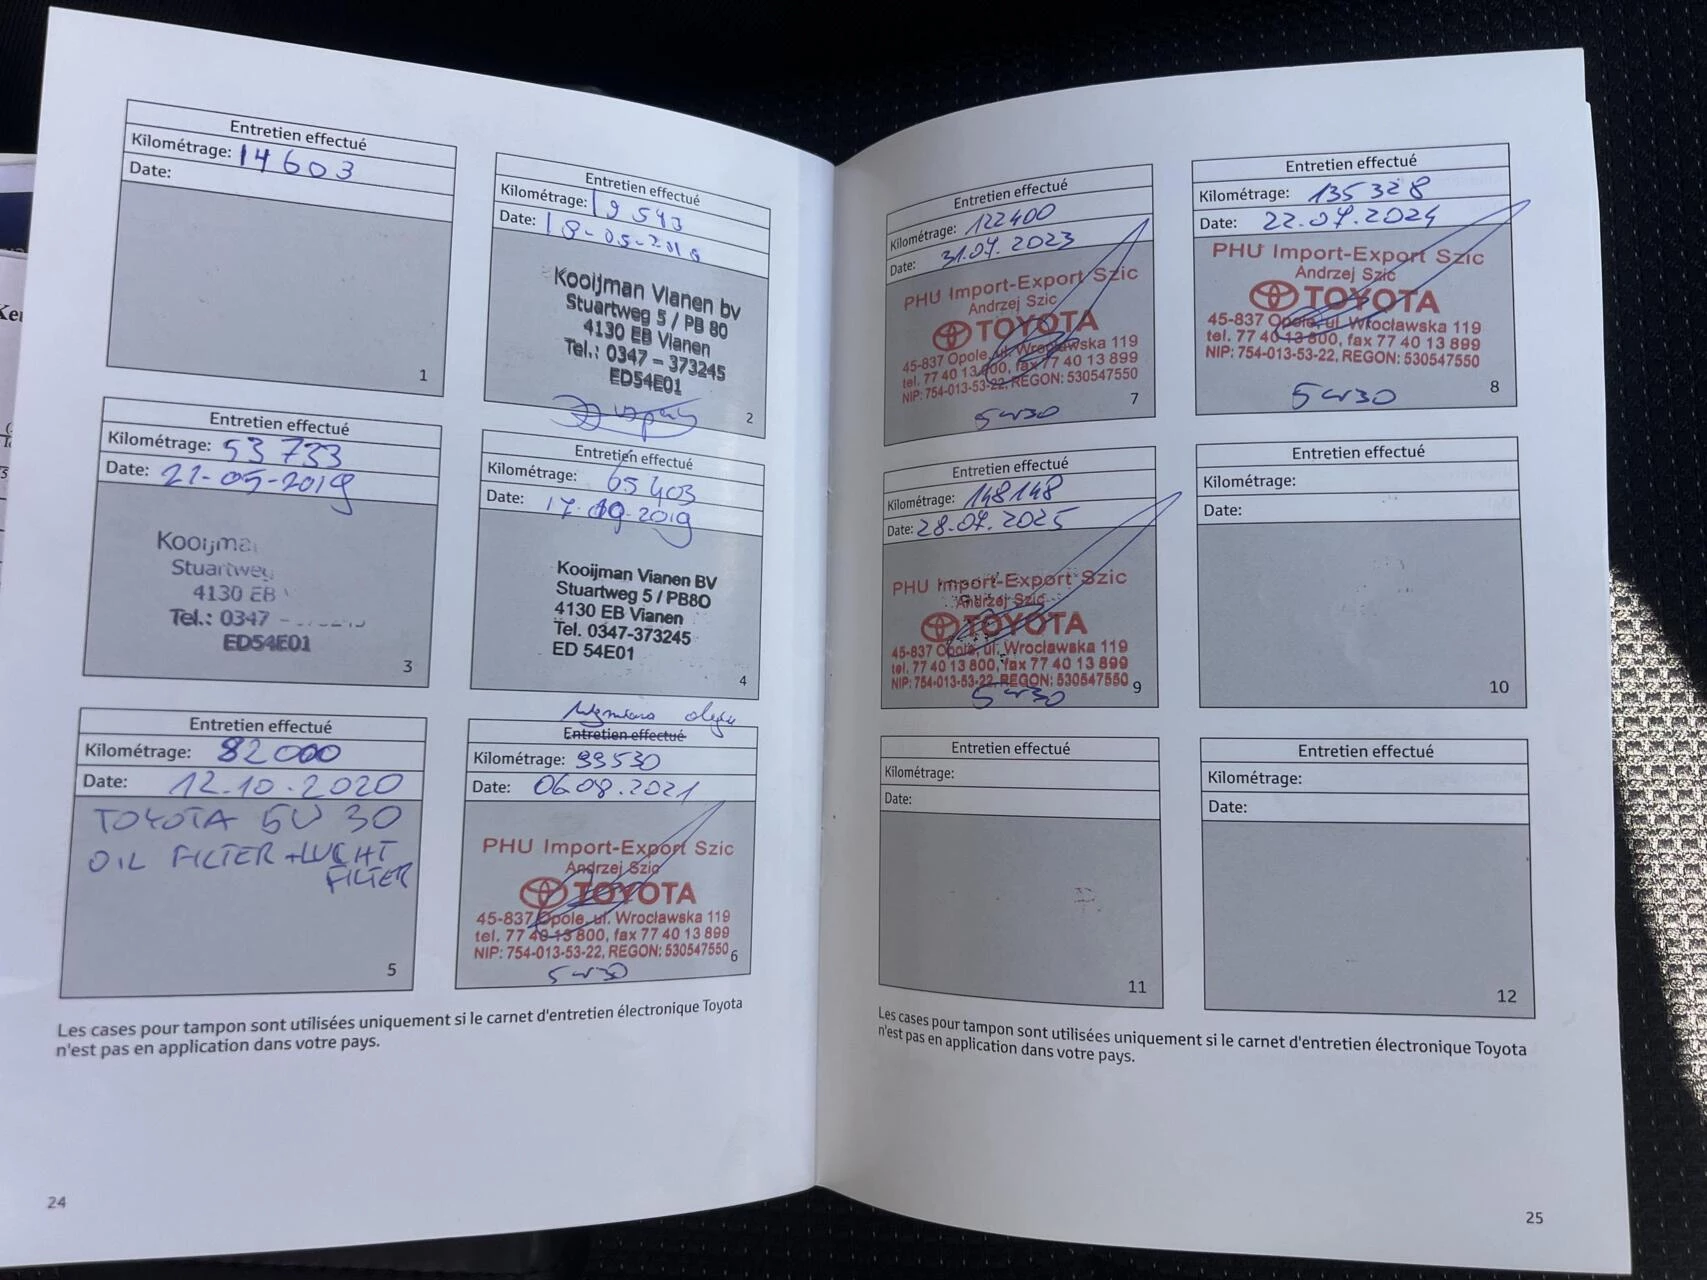 Entretien effectué
Kilométrage: 14603
Date:
1
Entretien effectué
Kilométrage: 19543
Date: 18-05-2018
Kooijman Vianen bv
Stuartweg 5 / PB 80
4130 EB Vianen
Tel.: 0347 – 373245
ED54E01
2
Entretien effectué
Kilométrage: 53733
Date: 21-05-2019
Kooijma
Stuartweg
4130 EB
Tel.: 0347 -
ED54E01
3
Entretien effectué
Kilométrage: 65403
Date: 17-09-2019
Kooijman Vianen BV
Stuartweg 5 / PB80
4130 EB Vianen
Tel. 0347-373245
ED 54E01
4
Entretien effectué
Kilométrage: 82000
Date: 12.10.2020
TOYOTA 5W 30
OIL FILTER + LUCHT
FILTER
5
Wymiana oleju
Entretien effectué
Kilométrage: 99530
Date: 06.08.2021
PHU Import-Export Szic
Andrzej Szic
TOYOTA
45-837 Opole, ul. Wrocławska 119
tel. 77 40 13 800, fax 77 40 13 899
NIP: 754-013-53-22, REGON: 530547550
5w30
6
Les cases pour tampon sont utilisées uniquement si le carnet d'entretien électronique Toyota
n'est pas en application dans votre pays.
24
Entretien effectué
Kilométrage: 122400
Date: 31.07.2023
PHU Import-Export Szic
Andrzej Szic
TOYOTA
45-837 Opole, ul. Wrocławska 119
tel. 77 40 13 800, fax 77 40 13 899
NIP: 754-013-53-22, REGON: 530547550
5w30
7
Entretien effectué
Kilométrage: 135328
Date: 22.07.2024
PHU Import-Export Szic
Andrzej Szic
TOYOTA
45-837 Opole, ul. Wrocławska 119
tel. 77 40 13 800, fax 77 40 13 899
NIP: 754-013-53-22, REGON: 530547550
5w30
8
Entretien effectué
Kilométrage: 148148
Date: 28.07.2025
PHU Import-Export Szic
Andrzej Szic
TOYOTA
45-837 Opole, ul. Wrocławska 119
tel. 77 40 13 800, fax 77 40 13 899
NIP: 754-013-53-22, REGON: 530547550
5w30
9
Entretien effectué
Kilométrage:
Date:
10
Entretien effectué
Kilométrage:
Date:
11
Entretien effectué
Kilométrage:
Date:
12
Les cases pour tampon sont utilisées uniquement si le carnet d'entretien électronique Toyota
n'est pas en application dans votre pays.
25